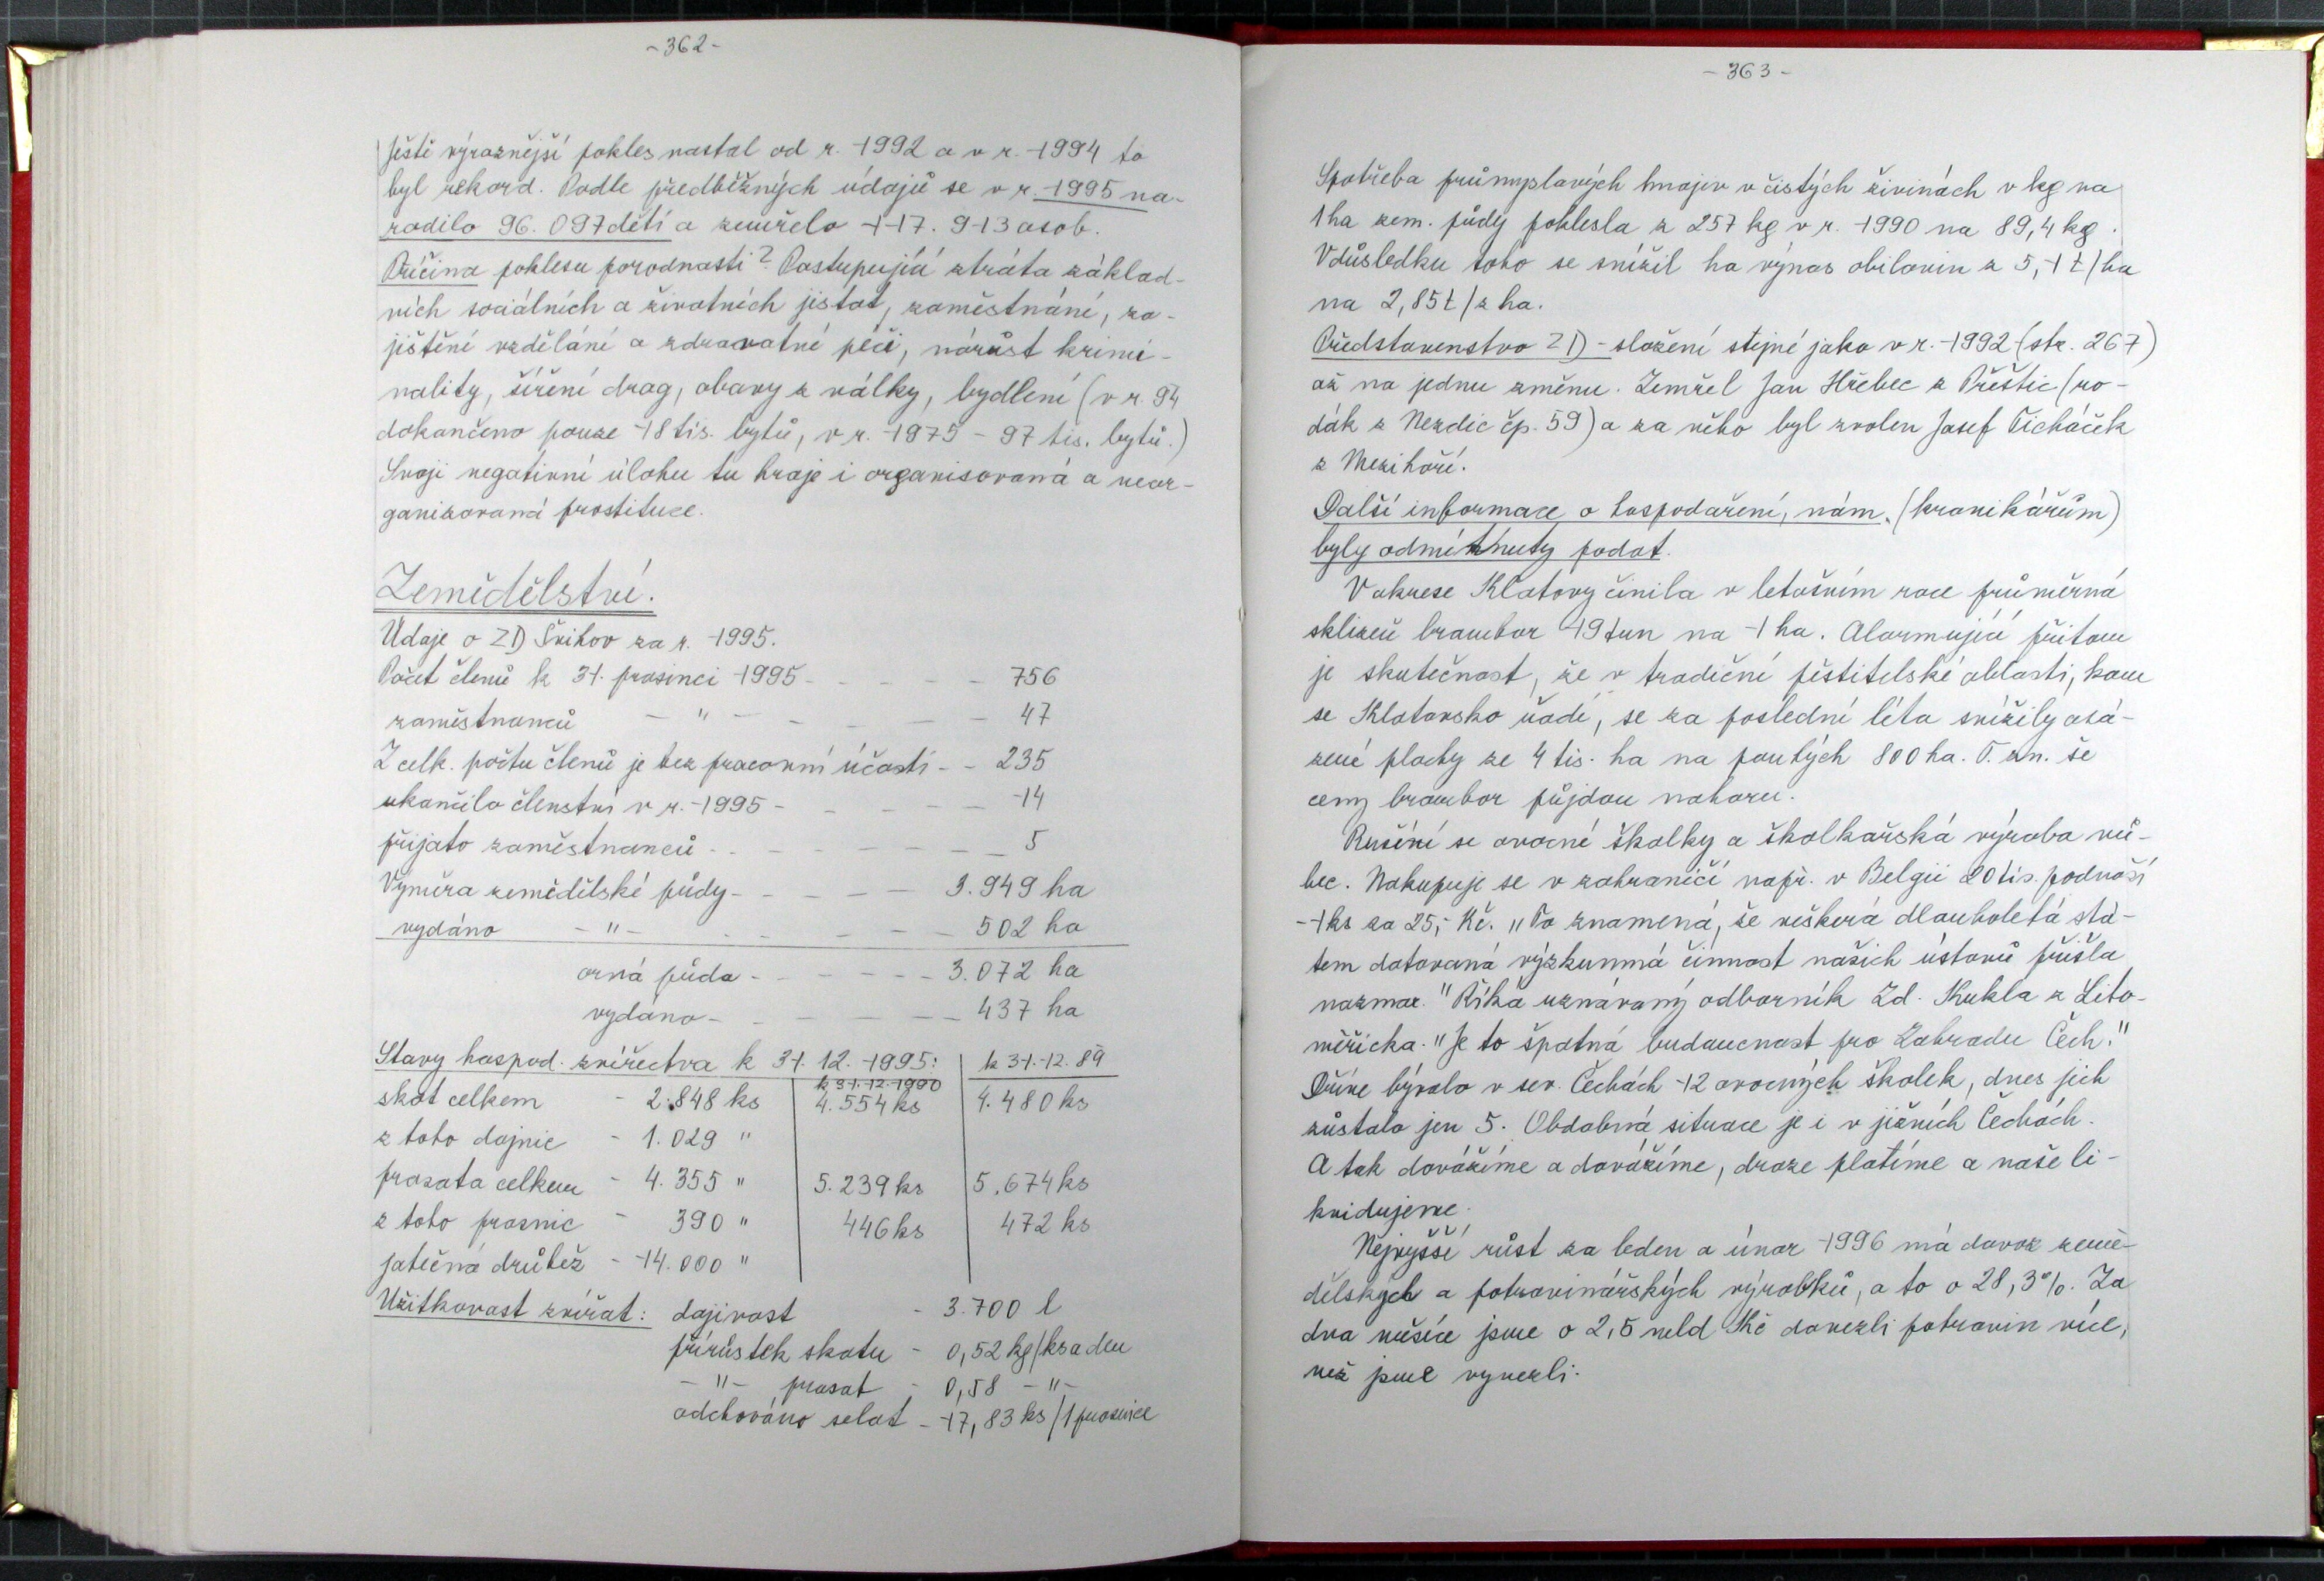 -362-
Ještě výraznější pokles nastal od r. 1992 a v r. 1994 to
byl rekord. Podle předběžných údajů se v r. 1995 na-
rodilo 96.097 dětí a zemřelo 117.913 osob.
Příčina poklesu porodnosti? Postupující ztráta základ-
ních sociálních a životních jistot, zaměstnání, za-
jištění vzdělání a zdravotné péči, nárůst krimi-
nality, šíření drog, obavy z války, bydlení (v r. 94
dokončeno pouze 18 tis. bytů, v r. 1975 - 97 tis. bytů.)
Svoji negativní úlohu tu hraje i organisovaná a neor-
ganizovaná prostituce.
Zemědělství.
Údaje o ZD Švihov za r. 1995.
Počet členů k 31. prosinci 1995 - - - - - 756
zaměstnanců - " - - - - - 47
Z celk. počtu členů je bez pracovní účasti - - 235
ukončilo členství v r. 1995 - - - - - 14
přijato zaměstnanců - - - - - - - 5
Výměra zemědělské půdy - - - - - 3.949 ha
vydáno - " - - - - - - 502 ha
orná půda - - - - - - 3.072 ha
vydáno - - - - - - 437 ha
Stavy hospod. zvířectva k 31. 12. 1995: k 31.12.89
k 31.12.1990
skot celkem - 2.848 ks 4.554 ks 4.480 ks
z toho dojnic - 1.029 "
prasata celkem - 4.355 " 5.239 ks 5.674 ks
z toho prasnic - 390 " 446 ks 472 ks
jatečná drůbež - 14.000 "
Užitkovost zvířat: dojivost - 3.700 l
přírůstek skotu - 0,52 kg/ks a den
- " - prasat - 0,58 - " -
odchováno selat - 17,83 ks/1 prasnice
-363-
Spotřeba průmyslových hnojiv v čistých živinách v kg na
1 ha zem. půdy poklesla z 257 kg v r. 1990 na 89,4 kg.
V důsledku toho se snížil ha výnos obilovin z 5,1 t/ha
na 2,85 t/z ha.
Představenstvo ZD - složení stejné jako v r. 1992 (str. 267)
až na jednu změnu. Zemřel Jan Hřebec z Přeštic (ro-
dák z Nezdic čp. 59) a za něho byl zvolen Josef Ticháček
z Mezihoří.
Další informace o hospodaření, nám (kronikářům)
byly odmítnuty podat.
V okrese Klatovy činila v letošním roce průměrná
sklizeň brambor 19 tun na 1 ha. Alarmující přitom
je skutečnost, že v tradiční pěstitelské oblasti, kam
se Klatovsko řadí, se za poslední léta snížily osá-
zené plochy ze 4 tis. ha na pouhých 800 ha. T. zn. še
ceny brambor půjdou nahoru.
Rušení se ovocné školky a školkařská výroba vů-
bec. Nakupuje se v zahraničí např. v Belgii 20 tis. podnoší
- 1 ks za 25,- Kč. "To znamená, še veškerá dlouholetá stá-
tem dotovaná výzkumná činnost našich ústavů přišla
nazmar." Říká uznávaný odborník Zd. Kukla z Lito-
měřicka. "Je to špatná budoucnost pro Zahradu Čech."
Dříve bývalo v sev. Čechách 12 ovocných školek, dnes jich
zůstalo jen 5. Obdobná situace je i v jižních Čechách.
A tak dovážíme a dovážíme, draze platíme a naše li-
kvidujeme.
Nejvyšší růst za leden a únor 1996 má dovoz země-
dělských a potravinářských výrobků, a to o 28,3%. Za
dva měsíce jsme o 2,5 mld Kč dovezli potravin více,
než jsme vyvezli.